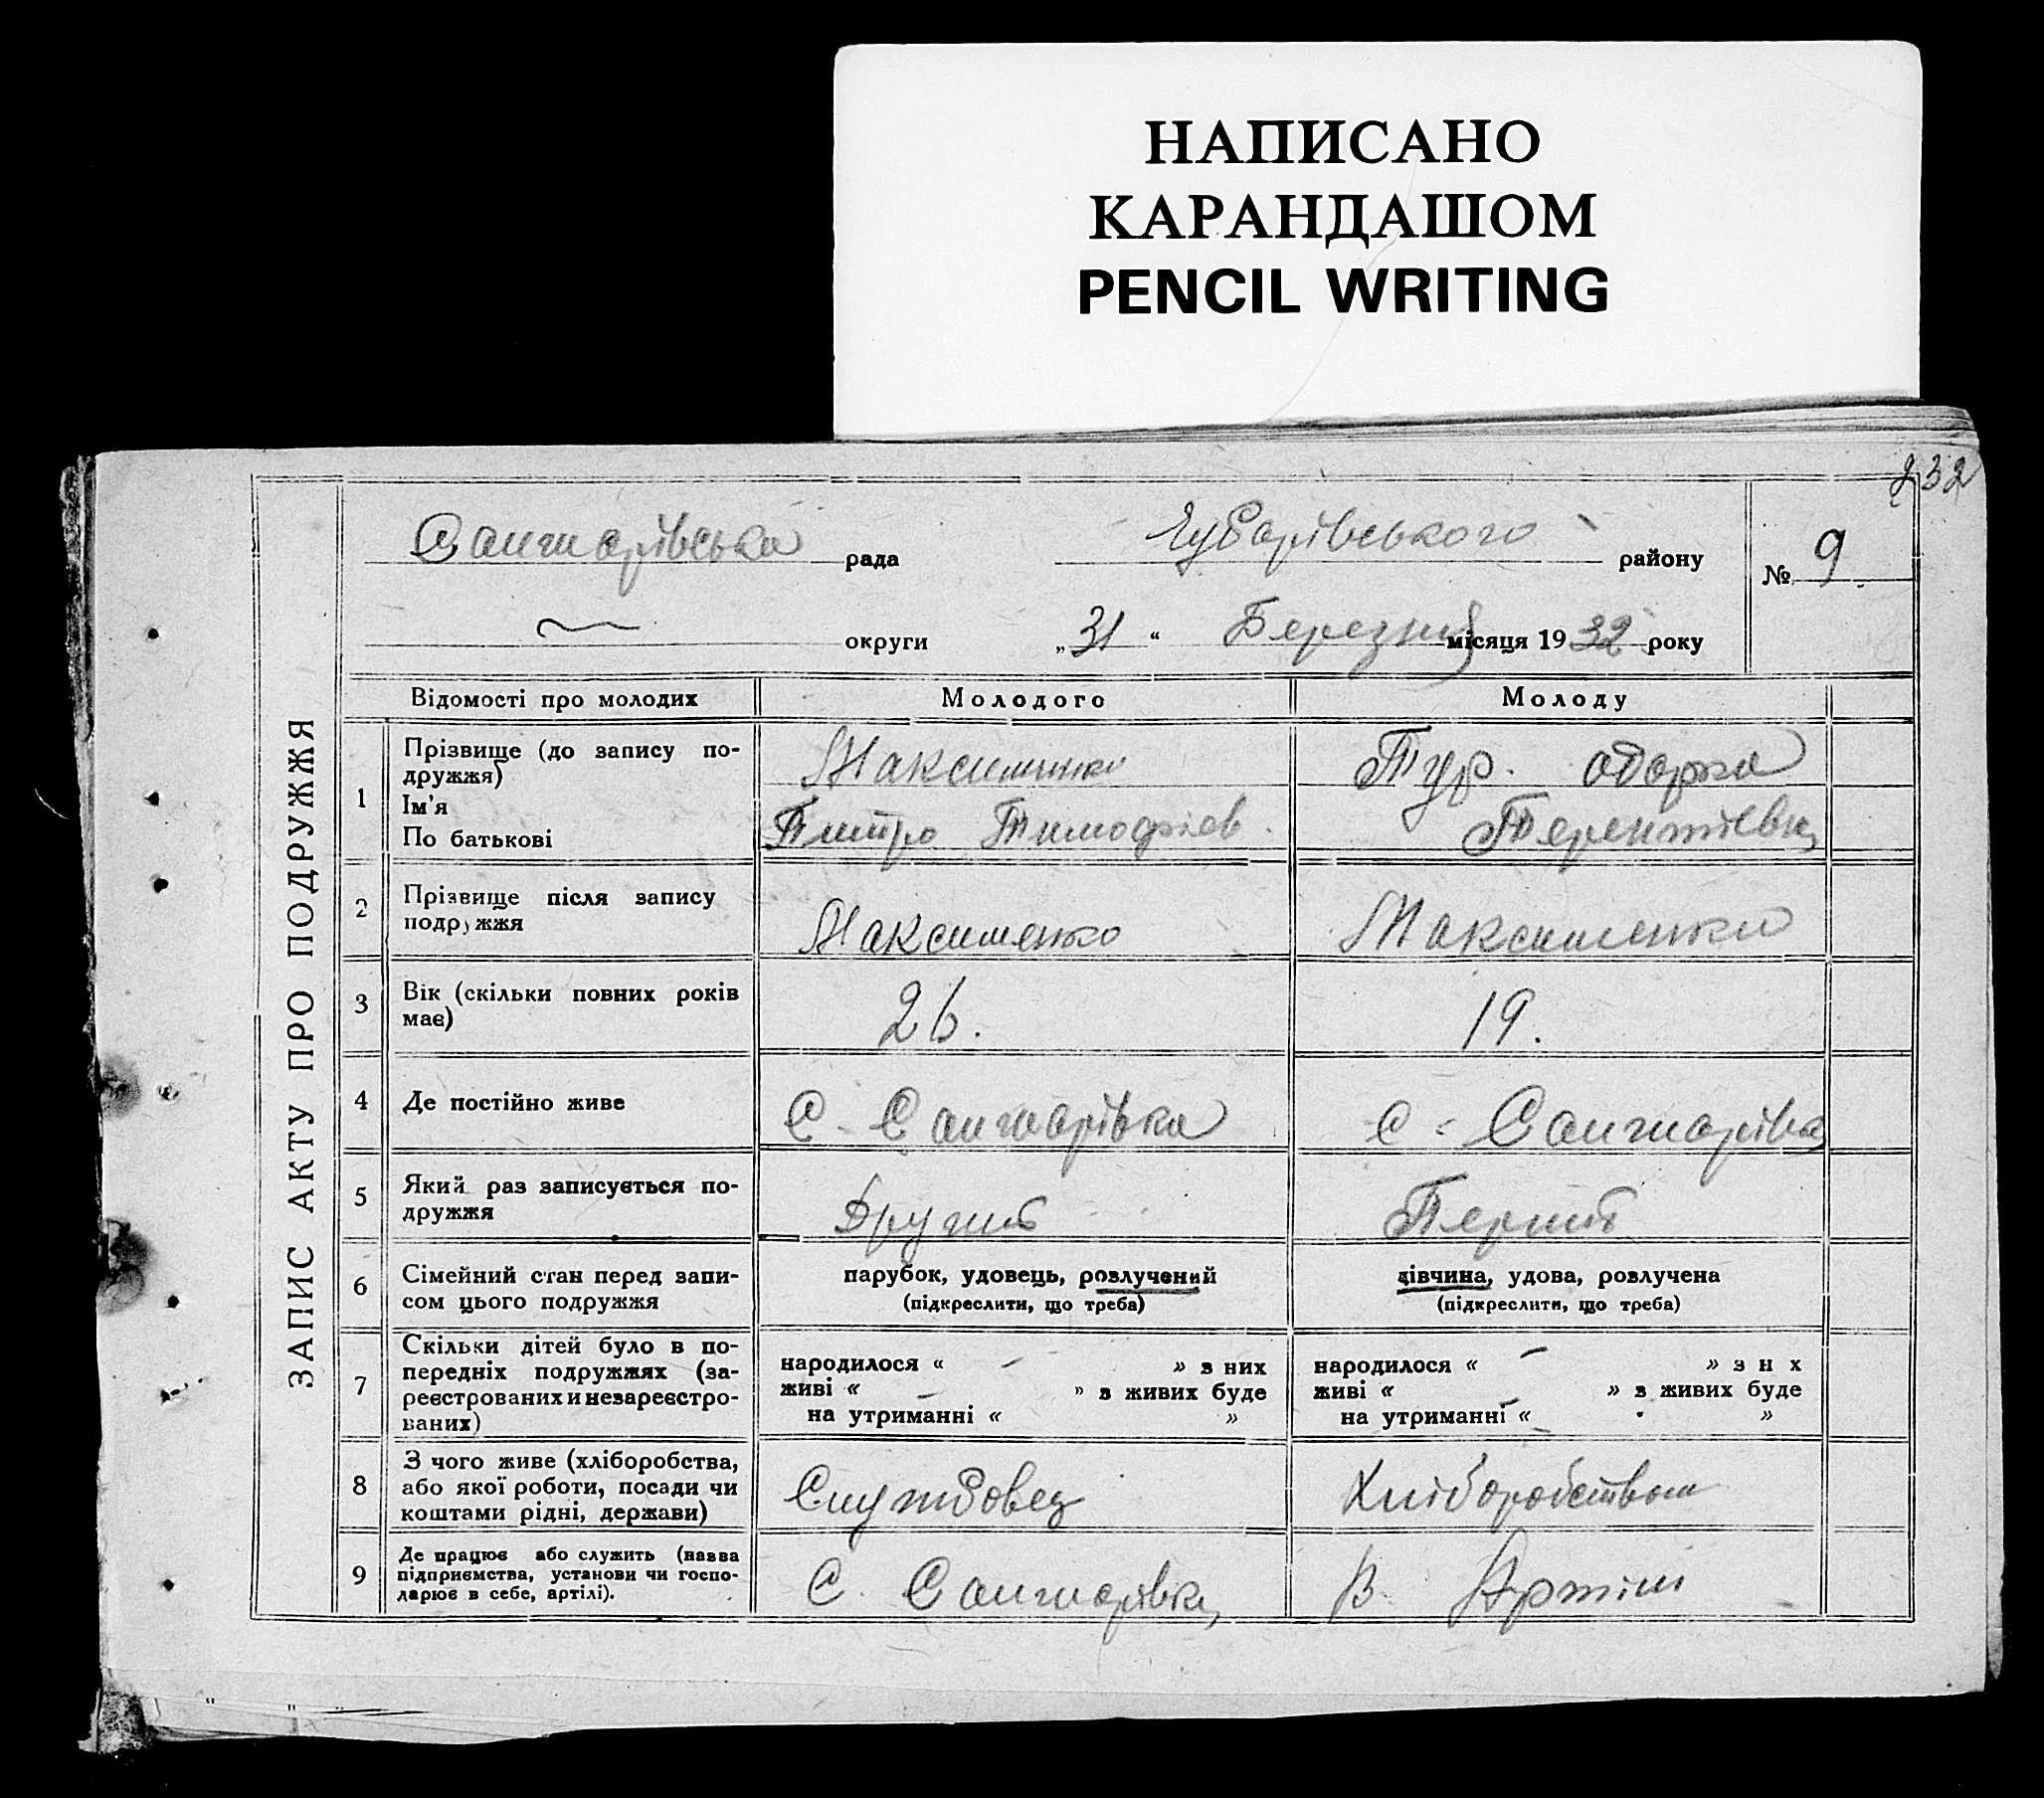 НАПИСАНО
КАРАНДАШОМ
PENCIL WRITING
232
ЗАПИС АКТУ ПРО ПОДРУЖЖЯ
Сангнарівська рада Чубарівського району № 9
округи „31“ Березня місяця 1932 року
Відомості про молодих Молодого Молоду
1 Прізвище (до запису по-
дружжя) Максименко Тур. одарка
Ім'я
По батькові Петро Тимофіев. Терентіевна
2 Прізвище після запису
подружжя Максименко Максименко
3 Вік (скільки повних років
має) 26. 19.
4 Де постійно живе С - Сангнарівка с - Сангнарівка
5 Який раз записується по-
дружжя Другий Перший
6 Сімейний стан перед запи-
сом цього подружжя
парубок, удовець, розлучений
(підкреслити, що треба)
дівчина, удова, розлучена
(підкреслити, що треба)
7 Скільки дітей було в по-
передніх подружжях (за-
реєстрованих и незареєстро-
ваних)
народилося « – » з них
живі « – » з живих буде
на утриманні « »
народилося « – » з н х
живі « » з живих буде
на утриманні « – »
8 З чого живе (хліборобства,
або якої роботи, посади чи
коштами рідні, держави)
Службовец Хліборобством
9 Де працює або служить (назва
підприємства, установи чи госпо-
дарює в себе, артілі).
С. Сангнарівка В Артілі